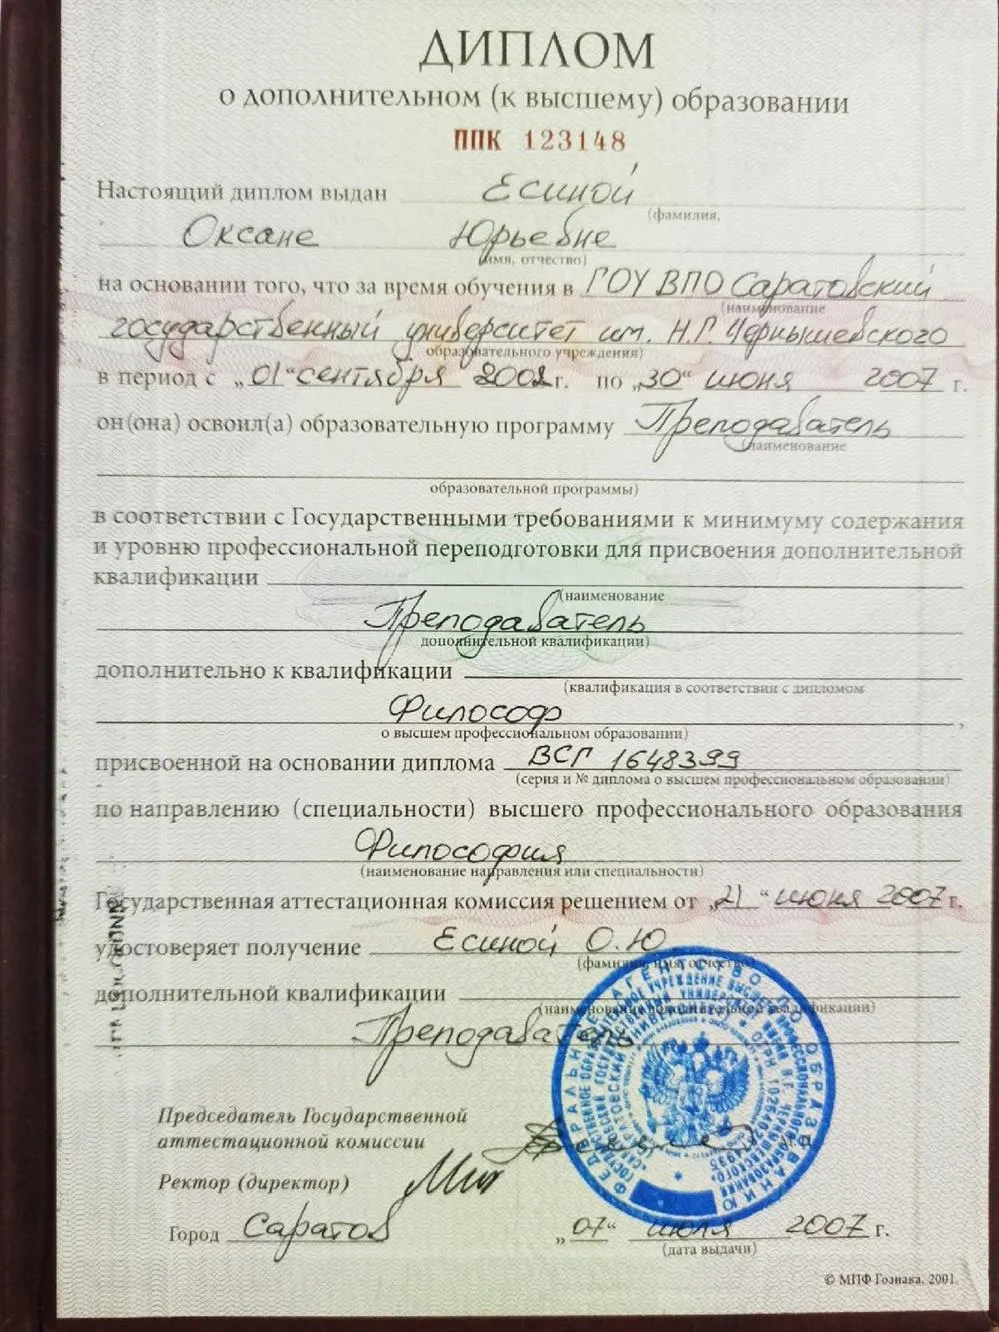 ДИПЛОМ
о дополнительном (к высшему) образовании
ППК 123148
Настоящий диплом выдан Есиной
(фамилия,
Оксане Юрьевне
имя, отчество)
на основании того, что за время обучения в ГОУ ВПО Саратовский
(наименование
государственный университет им. Н.Г. Чернышевского
образовательного учреждения)
в период с „01“ сентября 2002 г. по „30“ июня 2007 г.
он(она) освоил(а) образовательную программу Преподаватель
(наименование
образовательной программы)
в соответствии с Государственными требованиями к минимуму содержания
и уровню профессиональной переподготовки для присвоения дополнительной
квалификации
(наименование
Преподаватель
дополнительной квалификации)
дополнительно к квалификации
(квалификация в соответствии с дипломом
Философ,
о высшем профессиональном образовании)
присвоенной на основании диплома ВСГ 1648399
(серия и № диплома о высшем профессиональном образовании)
по направлению (специальности) высшего профессионального образования
Философия
(наименование направления или специальности)
Государственная аттестационная комиссия решением от „21“ июня 2007 г.
удостоверяет получение Есиной О.Ю
(фамилия, имя, отчество)
дополнительной квалификации
(наименование дополнительной квалификации)
Преподаватель
Председатель Государственной
аттестационной комиссии
М.П.
Ректор (директор)
Город Саратов „07“ июля 2007 г.
(дата выдачи)
© МПФ Гознака. 2001.